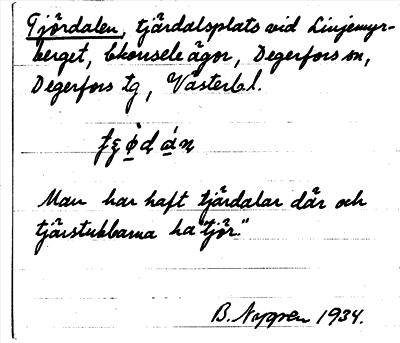 Tjördalen, tjärdalsplats vid Linjemyr-
berget, Ekonsele ägor, Degerfors sn,
Degerfors tg, Västerb l.
Man har haft tjärdalar där och
tjärstubbarna ha "tjör."
B. Nygren 1934.